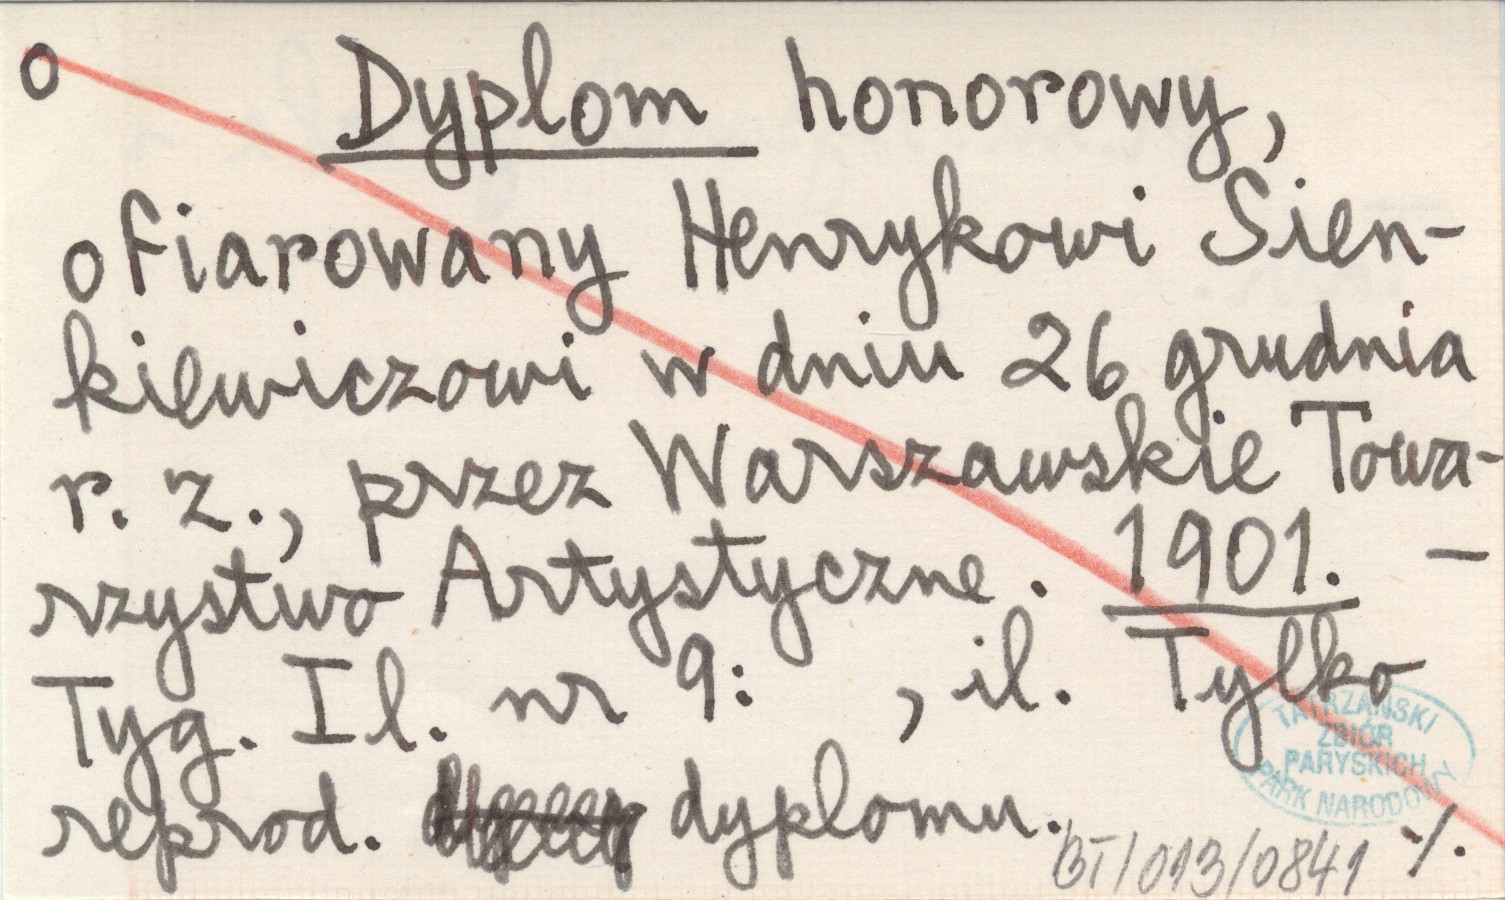 o Dyplom honorowy,
ofiarowany Henrykowi Sien-
kiewiczowi w dniu 26 grudnia
r. z., przez Warszawskie Towa-
rzystwo Artystyczne. 1901. –
Tyg. Il. nr 9: , il. Tylko
reprod. dyplomu. -/.
TATRZAŃSKI
ZBIÓR
PARYSKICH
PARK NARODOWY
BT/013/0841